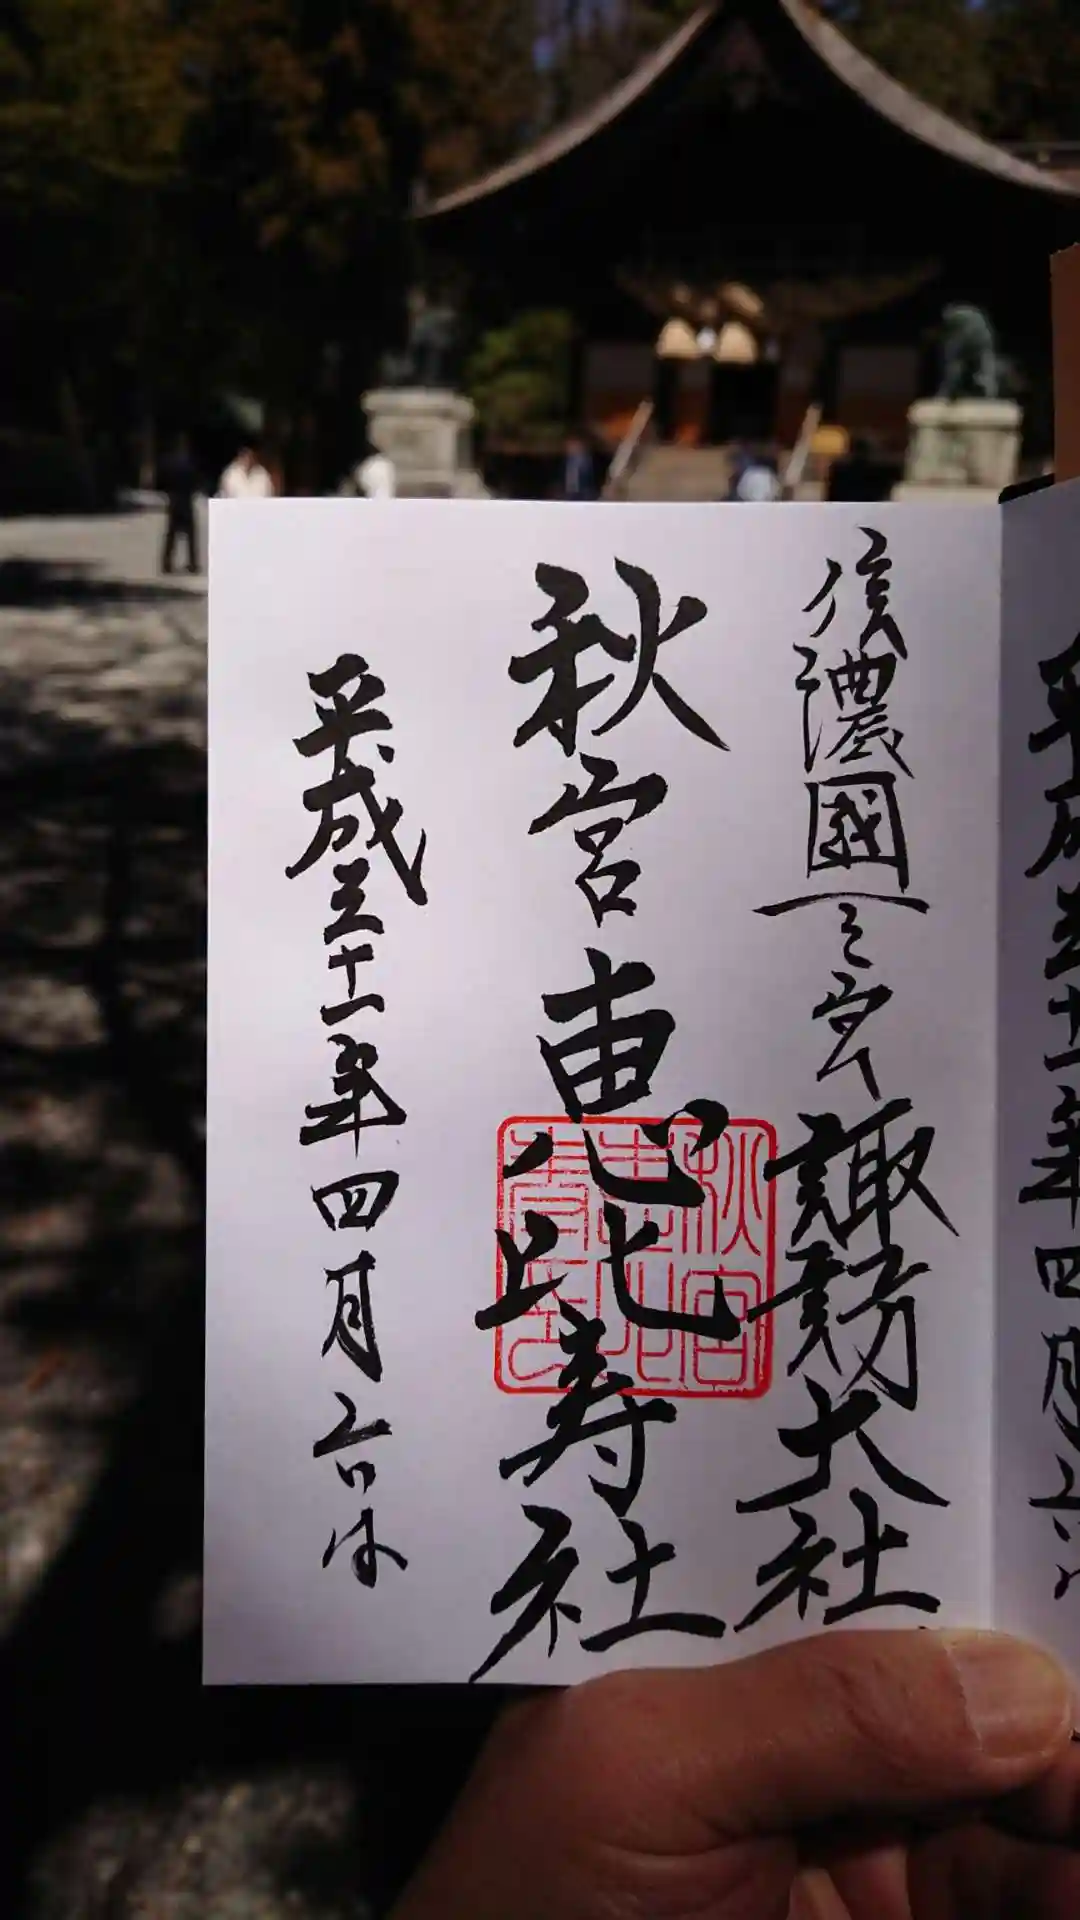 平成三十一年四月六
信濃國一之宮 諏訪大社
秋宮恵比寿社
平成三十一年四月六日
秋宮恵比寿社